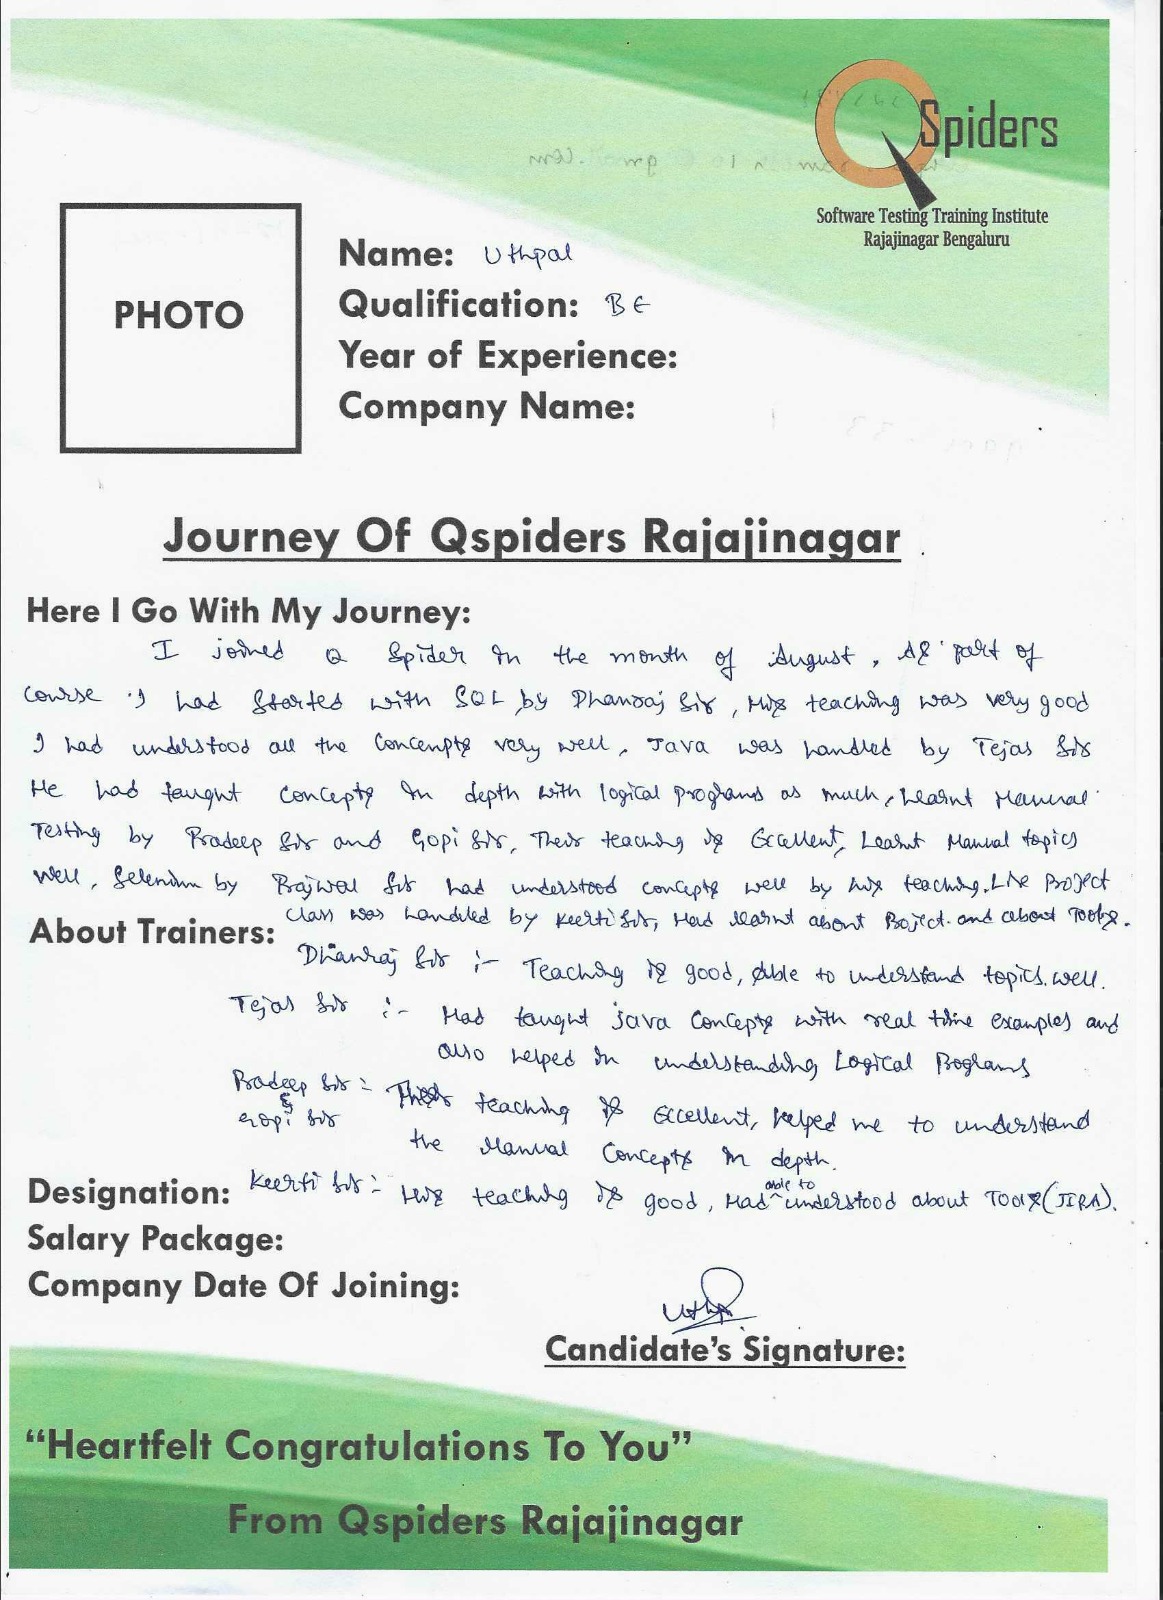 QSpiders
Software Testing Training Institute
Rajajinagar Bengaluru
PHOTO
Name: Uthpal
Qualification: BE
Year of Experience:
Company Name:
Journey Of Qspiders Rajajinagar
Here I Go With My Journey:
I joined Q Spider in the month of August, As part of
course I had started with SQL by Dhanraj Sir, His teaching was very good
I had understood all the Concenpts very well, Java was handled by Tejas Sir
He had taught concepts in depth with logical programs as much, Learnt Manual
Testing by Pradeep Sir and Gopi Sir, Their teaching is Excellent, Learnt Manual topics
well, Selenium by Prajwal Sir had understood concepts well by his teaching. Live Project
class was handled by Keerti Sir, Had learnt about Project and about Tools.
About Trainers:
Dhanraj Sir :- Teaching is good, Able to understand topics well.
Tejas Sir :- Had taught java concepts with real time examples and
also helped in understanding Logical Programs
Pradeep Sir :- Their teaching is Excellent, helped me to understand
& Gopi Sir the Manual Concepts in depth.
Keerti Sir :- His teaching is good, Had able to understood about Tools (JIRA).
Designation:
Salary Package:
Company Date Of Joining:
Uthpal
Candidate's Signature:
“Heartfelt Congratulations To You”
From Qspiders Rajajinagar